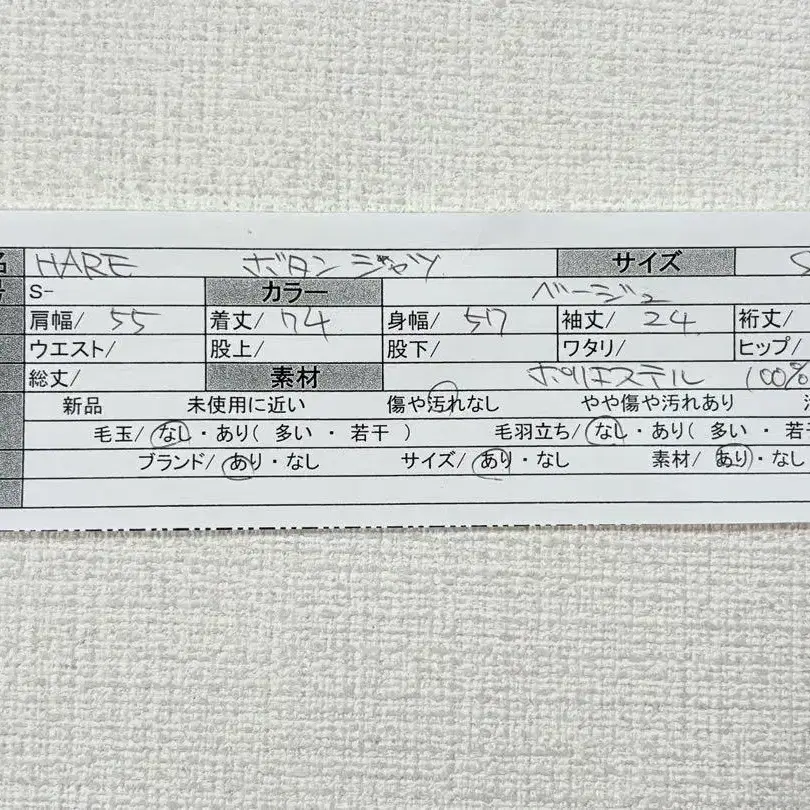 名 HARE ボタンシャツ サイズ S
号 S- カラー ベージュ
肩幅/ 55 着丈/ 74 身幅/ 57 袖丈/ 24 裄丈/
ウエスト/ 股上/ 股下/ ワタリ/ ヒップ/
総丈/ 素材 ポリエステル 100%
新品 未使用に近い 傷や汚れなし やや傷や汚れあり
毛玉/ なし・あり( 多い ・ 若干 ) 毛羽立ち/ なし・あり( 多い ・ 若干
ブランド/ あり・なし サイズ/ あり・なし 素材/ あり・なし